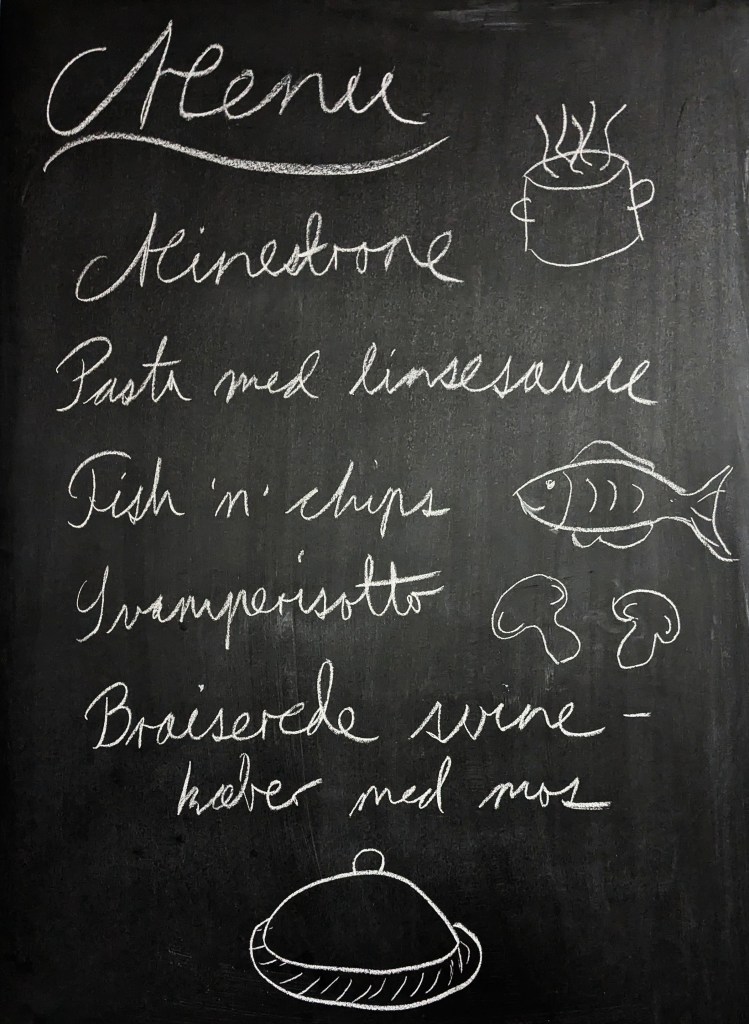 Menu
Minestrone
Pasta med linsesauce
Fish 'n' chips
Svamperisotto
Braiserede svine-
kæber med mos